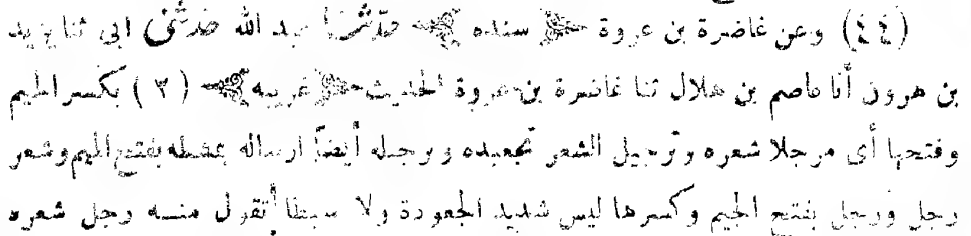 (٤٤) وعن غاضرة بن عروة ﴿سنده﴾ حدّثنا عبد الله حدّثنى ابى ثنا يزيد
بن هرون أنا عاصم بن هلال ثنا غاضرة بن عروة الحديث ﴿غريبه﴾ (٣) بكسر الجيم
وفتحها أى مرجلا شعره وترجيل الشعر تجعيده وترجيله أيضاً ارساله بمشطه بفتح الجيم وشعر
رجل ورجل بفتح الجيم وكسرها ليس شديد الجعودة ولا سبطا تقول منه رجل شعره